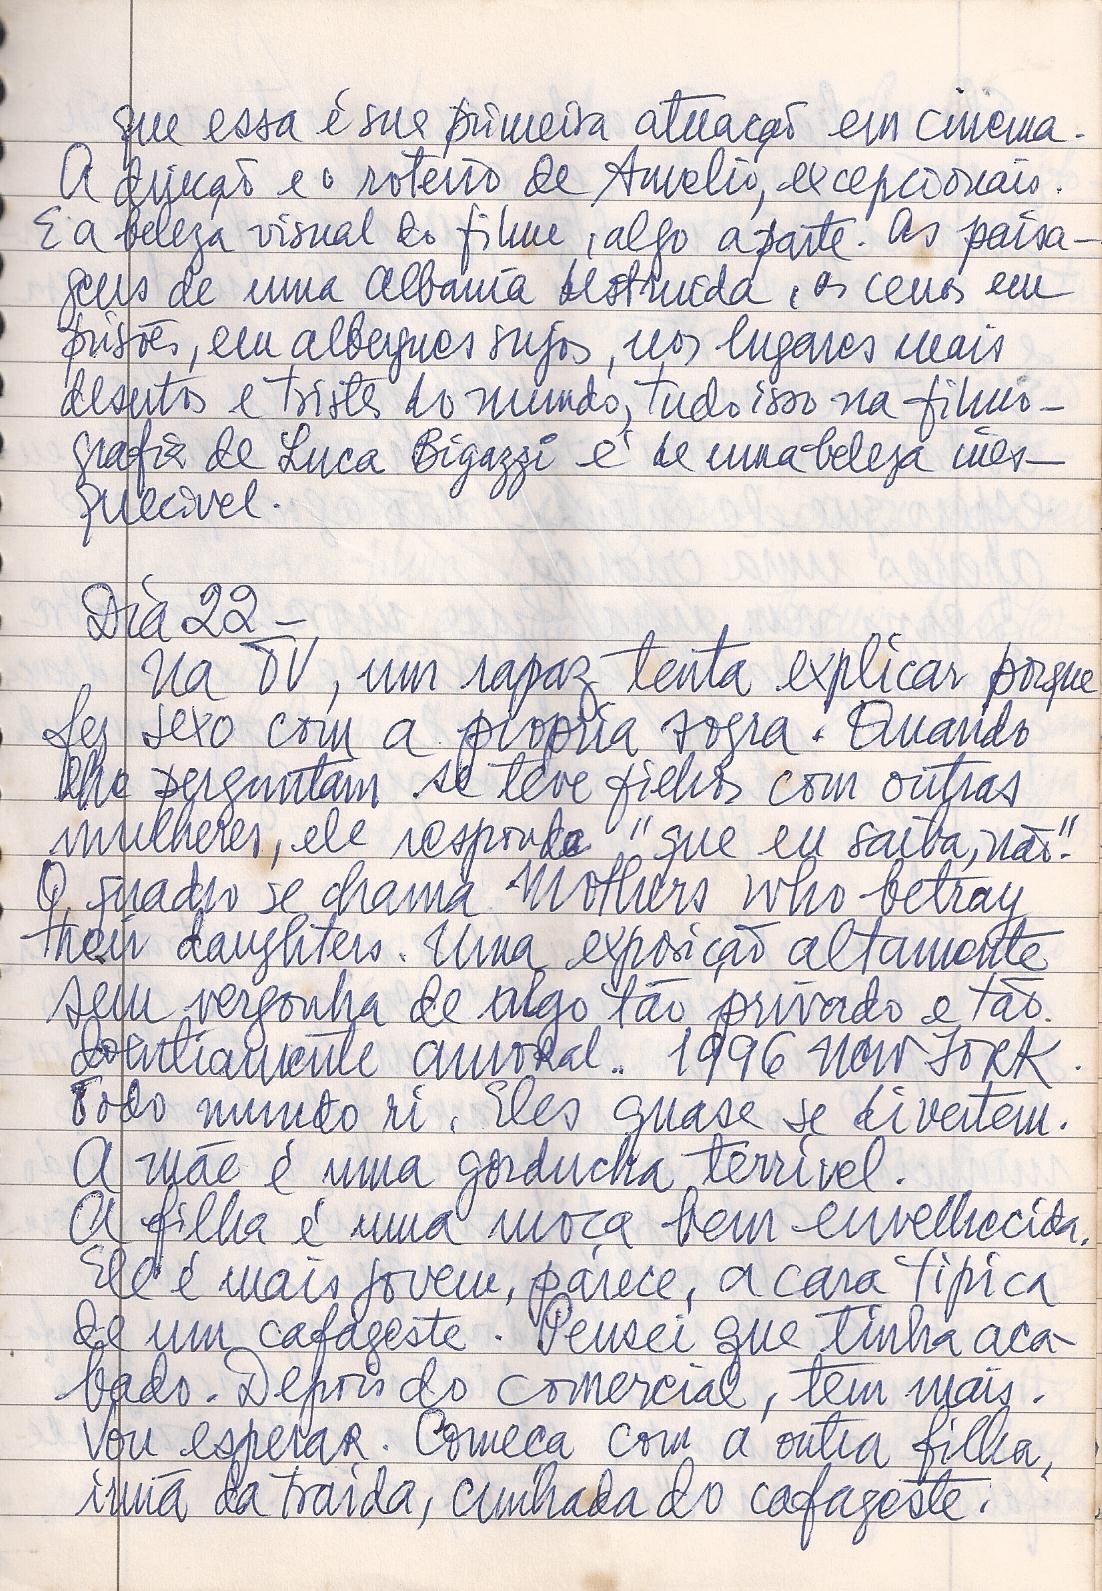 que essa é sua primeira atuação em cinema.
A direção e o roteiro de Amelio, excepcionais.
E a beleza visual do filme, algo a parte. As paisa-
gens de uma Albania destruida, as cenas em
prisões, em albergues sujos, nos lugares mais
desertos e tristes do mundo, tudo isso na filmo-
grafia de Luca Bigazzi é de uma beleza ines-
quecivel.
Dia 22 -
Na TV, um rapaz tenta explicar porque
fez sexo com a propria sogra. Quando
lhe perguntam se teve filhos com outras
mulheres, ele responde "que eu saiba, não".
O quadro se chama Mothers who betray
their daughters. Uma exposição altamente
sem vergonha de algo tão privado e tão
doentiamente amoral.. 1996 New York.
Todo mundo ri. Eles quase se divertem.
A mãe é uma gorducha terrivel.
A filha é uma moça bem envelhecida.
Ele é mais jovem, parece, a cara tipica
de um cafageste. Pensei que tinha aca-
bado. Depois do comercial, tem mais.
Vou esperar. Comeca com a outra filha,
irmã da traida, cunhada do cafageste.